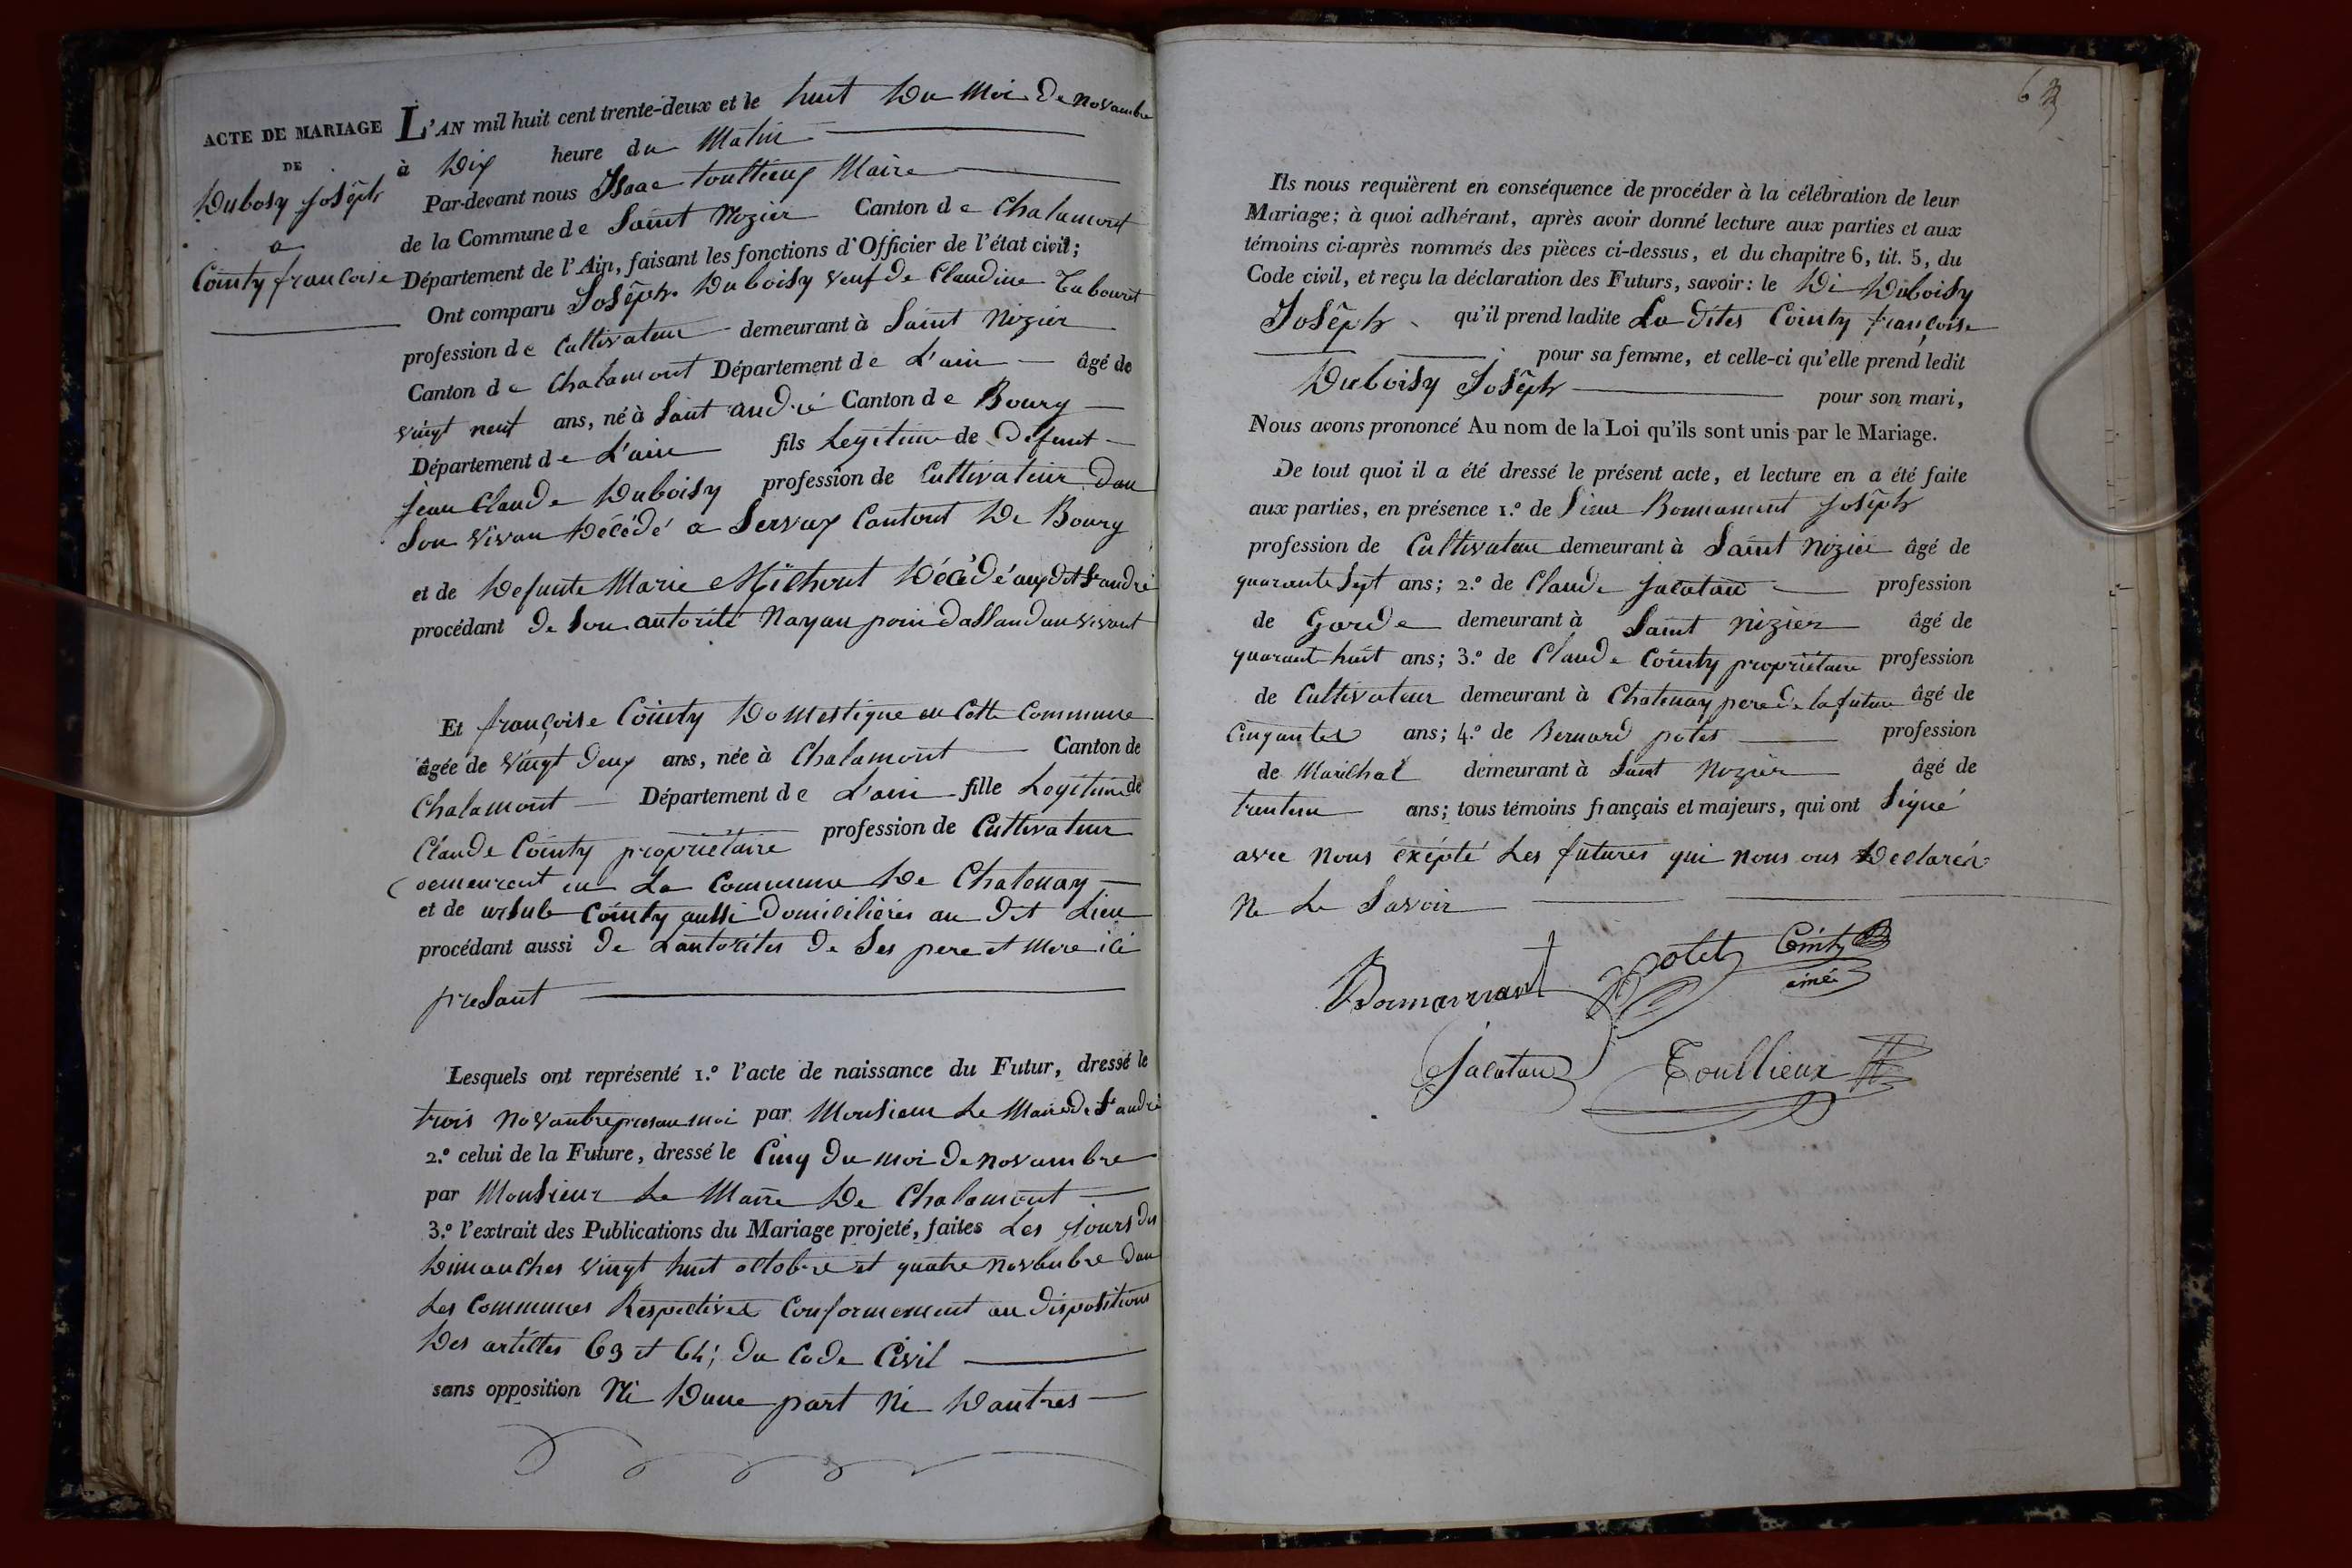 ACTE DE MARIAGE
DE
Dubosy joséph
a
Cointy francoise
L'AN mil huit cent trente-deux et le huit du Moi de novambre
à Dix heure du Matin
Par-devant nous Isaac toullieux Maire
de la Commune de Saint Nizier Canton de Chalamont
Département de l'Ain, faisant les fonctions d'Officier de l'état civil;
Ont comparu Joséph Duboisy veuf de Claudine Tabouret
profession de Cultivateur demeurant à Saint Nizier
Canton de Chalamont Département de L'ain âgé de
vingt neuf ans, né à Saint andré Canton de Bourg
Département de L'ain fils Legitime de Defunt
jean Claude Duboisy profession de Cultivateur dan
Son vivan Décédé a Servax Cantont De Bourg
et de Defunte Marie Michout Décédé auxdit St andré
procédant de Son autorité Nayan poin dassandan vivant
Et françoise Cointy Domestique en Cette Commune
âgée de vingt deux ans, née à Chalamont Canton de
Chalamont Département de L'ain fille Legitime de
Claude Cointy propriétaire profession de Cultivateur
demeurant en La Commune De Chatenay
et de ursule Cointy aussi Domicilières au dit Lieu
procédant aussi de Lautorites de Ses pere et Mere ici
presant
Lesquels ont représenté 1.º l'acte de naissance du Futur, dressé le
trois Novanbre presan moi par Monsieur Le Maire de St andré
2.º celui de la Future, dressé le Cinq du moi de novambre
par Monsieur Le Maire De Chalamont
3.º l'extrait des Publications du Mariage projeté, faites Les jours des
Dimanches vingt huit octobre et quatre Novenbre dan
Les Communes Respectives Conformement au dispositions
Des articles 63 et 64; du Code Civil
sans opposition Ni Dune part Ni Dautres
63
Ils nous requièrent en conséquence de procéder à la célébration de leur
Mariage; à quoi adhérant, après avoir donné lecture aux parties et aux
témoins ci-après nommés des pièces ci-dessus, et du chapitre 6, tit. 5, du
Code civil, et reçu la déclaration des Futurs, savoir: le Di Duboisy
Joséph qu'il prend ladite La dites Cointy françoise
pour sa femme, et celle-ci qu'elle prend ledit
Duboisy Joséph pour son mari,
Nous avons prononcé Au nom de la Loi qu'ils sont unis par le Mariage.
De tout quoi il a été dressé le présent acte, et lecture en a été faite
aux parties, en présence 1.º de Sieur Bonnamant Joséph
profession de Cultivateur demeurant à Saint Nizier âgé de
quarante Sept ans; 2.º de Claude Jacatau profession
de Garde demeurant à Saint nizier âgé de
quarant huit ans; 3.º de Claude Cointy propriétaire profession
de Cultivateur demeurant à Chatenay pere de la future âgé de
Cinquantes ans; 4.º de Bernard potet profession
de Marichal demeurant à Saint Nizier âgé de
ans; tous témoins français et majeurs, qui ont Signé
avec Nous éxépté Les futures qui nous ons Declarés
Ne Le Savoir
Bomannant potet Cointy
ainé
Jacatau Toullieux